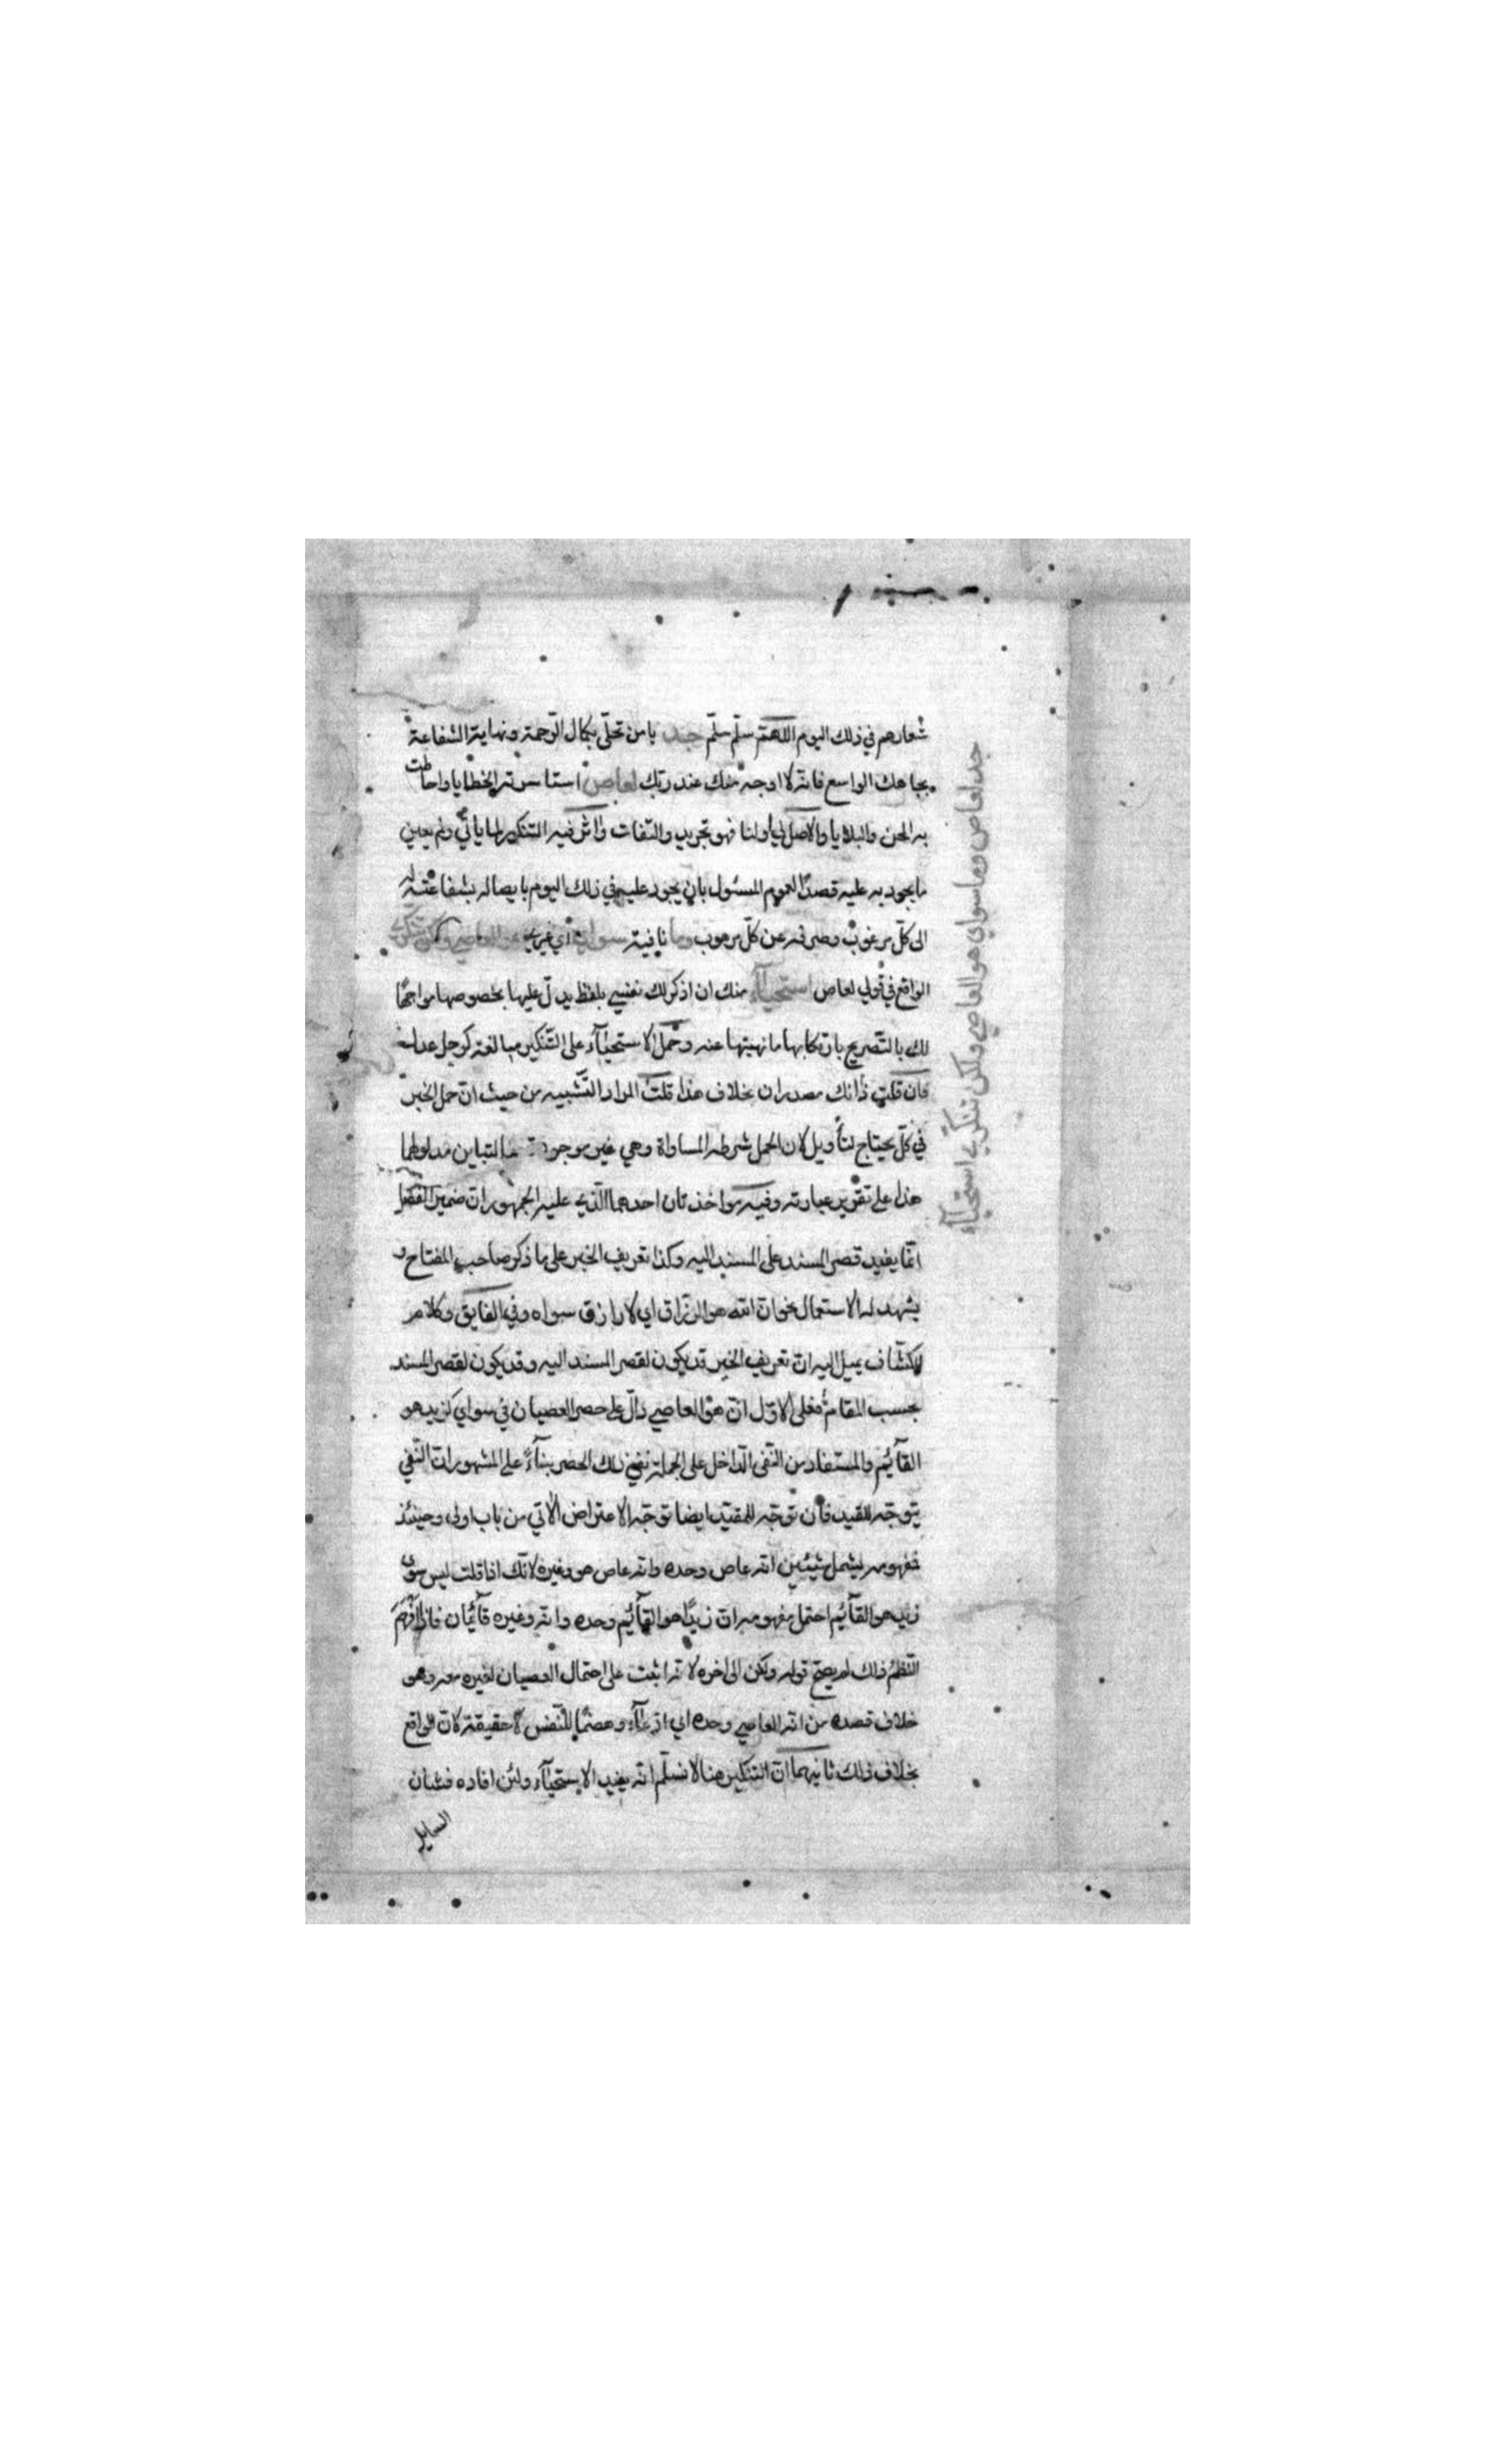 شعارهم في ذلك اليوم اللهم سلّم سلّم جد يا من تحلّى بكمال الرّحمة ونهاية الشفاعة
بجاهك الواسع فانه لا اوجه منك عند ربّك لعاص استاسرته الخطايا واحاطت
به المحن والبلايا والاصل لي او لنا فهو تجريد والتفات واثر فيه التنكير لما ياتي ولم يعين
ما يجود به عليه قصدًا لعموم المسئول بان يجود عليه في ذلك اليوم بايصاله بشفاعته له
الى كلّ مرغوب وصرفه عن كلّ مرهوب وما نافية سواي اي غيري هو العاصي ولكن تنكري
الواقع في قولي لعاص استحيآء منك ان اذكر لك نفسي بلفظ يدلّ عليها بخصوصها مواجهًا
لك بالتّصريح بارتكابها ما نهيتها عنه وحمل الاستحيآء على التّنكير مبالغة كرجل عدل
فان قلت ذانك مصدران بخلاف هذا قلت المراد التّشبيه من حيث انّ حمل الخبر
في كلّ يحتاج لتأويل لان الحمل شرطه المساواة وهي غير موجودة لتباين مدلولهما
هذا على تقرير عبارته وفيه مواخذتان احدهما الّذي عليه الجمهور انّ ضمير الفصل
انّما يفيد قصر المسند على المسند اليه وكذا تعريف الخبر على ما ذكر صاحب المفتاح و
يشهد له الاستعمال نحو انّ الله هو الرزّاق اي لا رازق سواه وفي الفايق وكلام
الكشّاف يميل اليه انّ تعريف الخبر قد يكون لقصر المسند اليه وقد يكون لقصر المسند
بحسب المقام فعلى الاوّل انّ هو العاصي دالّ على حصر العصيان في سواي كزيد هو
القآئم والمستفاد من النّفى الدّاخل على الجملة نفي ذلك الحصر بنآءً على المشهور انّ النّفي
يتوجّه للقيد فان توجّه للمقيّد ايضا توجّه الاعتراض الآتي من باب اولى وحينئذ
فمفهومه يشمل شيئين انه عاص وحده وانه عاص هو وغيره لانّك اذا قلت ليس سوى
زيد هو القآئم احتمل مفهومه ان زيدًا هو القآئم وحده وانه وغيره قآئمان فاذا افهم
النّظم ذلك لم يصحّ قوله ولكن الى اخره لانه اثبت على احتمال العصيان لغيره معه وهو
خلاف قصده من انه العاصي وحده اي ادّعآء وهضمًا للنّفس لا حقيقة لانّ الواقع
بخلاف ذلك ثانيهما انّ التنكير هنا لا نسلّم انّه يفيد الاستحيآء ولئن افاده فشان
السايل
جد لعاص وما سواي هو العاصي ولكن تنكري استحيآء